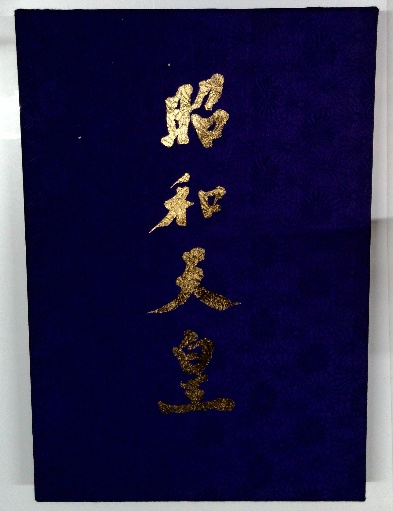 昭和天皇